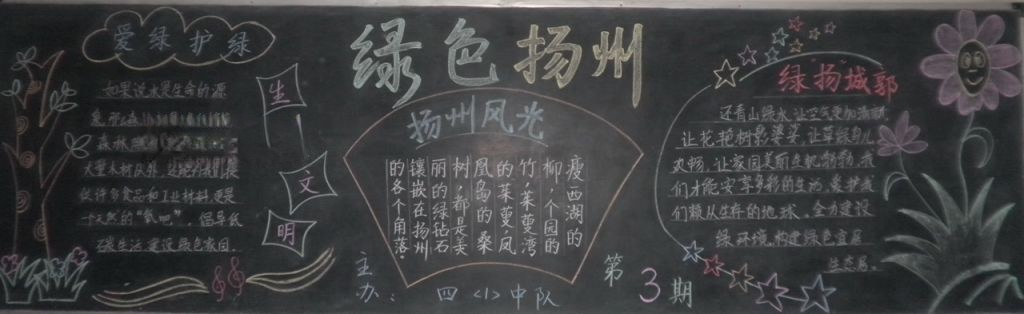 绿色扬州
爱绿护绿
如果说水是生命的源
泉,那么森
森林
大量木材以外,还能为我们提
供许多食品和工业材料,更是
十足天然的"氧吧"。倡导低
碳生活,建设绿色家园。
生
文
明
扬州风光
瘦西湖的
柳,个园的
竹,茱萸湾
的茱萸,凤
凰岛的桑
树,都是美
丽的绿钻石
镶嵌在扬州
的各个角落。
绿"扬"城郭
还青山绿水,让空气更加清新,
让花艳树影婆娑,让草
让家园美丽
们才能安享多彩的生活。爱护我
们赖以生存的地球,全力建设
绿环境,构建绿色家居
生态居。
主办:四〈1〉中队
第3期